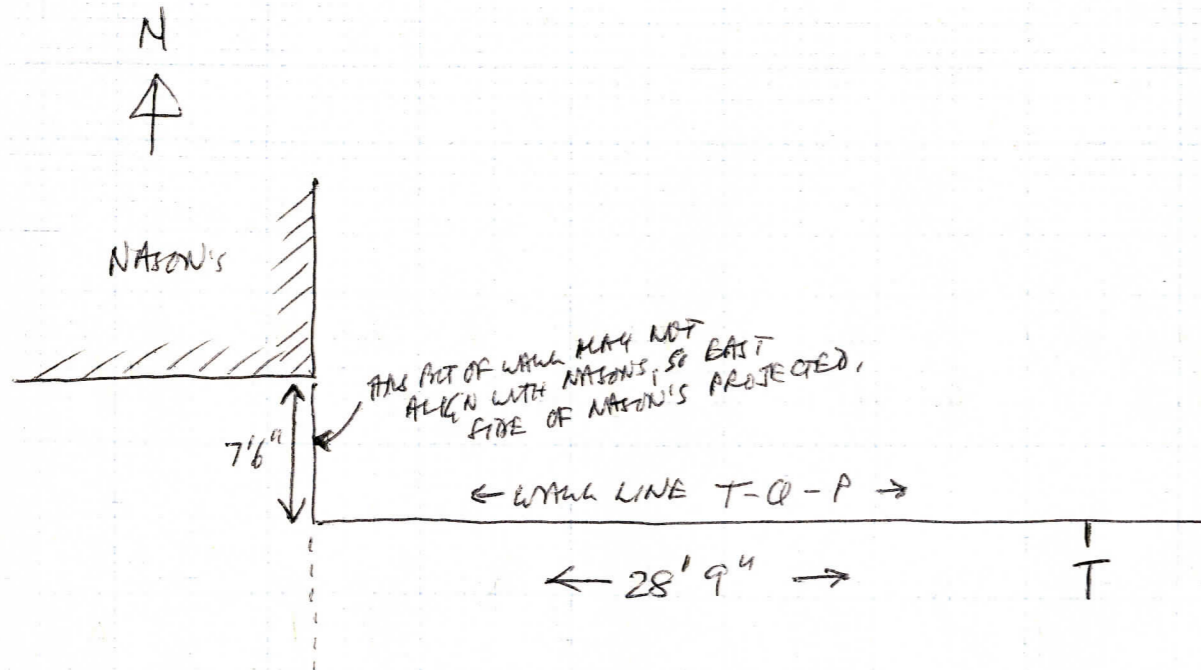 N
NASON'S
THIS BIT OF WALL MAY NOT
ALIGN WITH NASONS, SO EAST
SIDE OF NASON'S PROJECTED.
7'6"
← WALL LINE T-Q-P →
← 28' 9" →
T